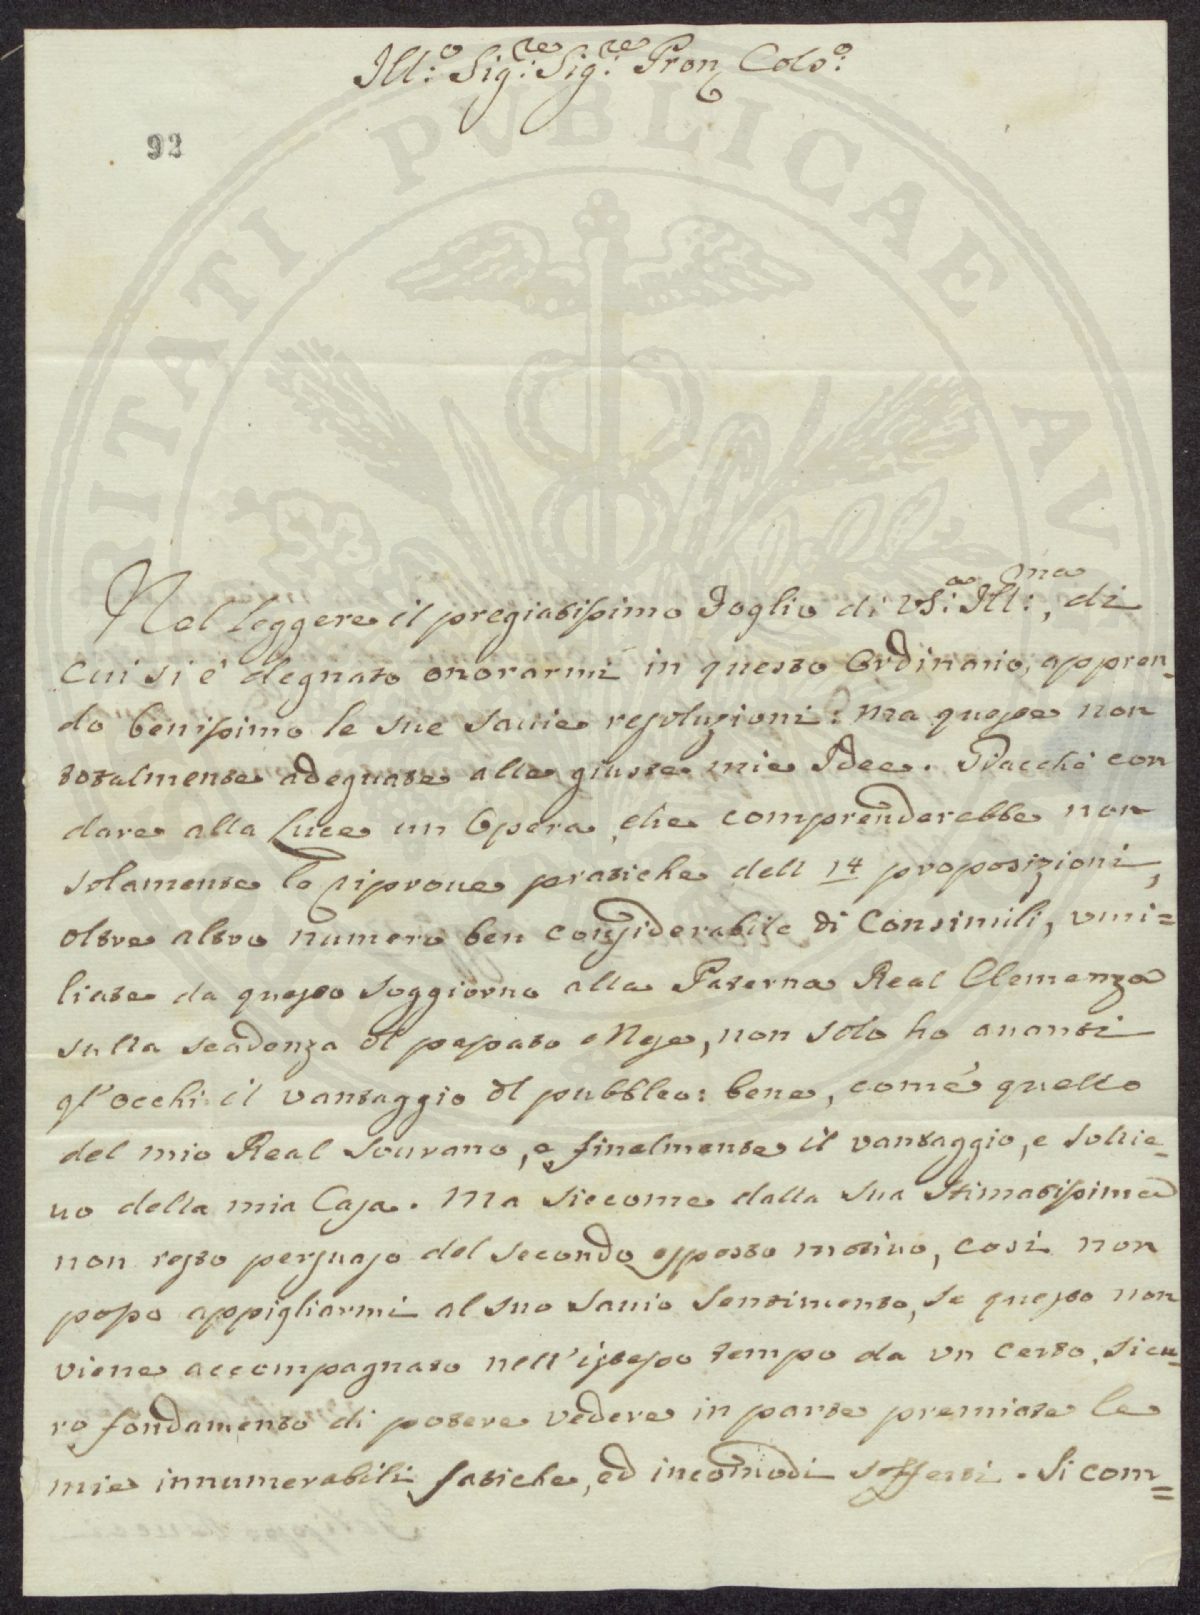 Ill:o Sig:re Sig:re Pron Colo:
92
Nel leggere il pregiatissimo Foglio di VS:a Ill:ma, di
cui si é degnato onorarmi in questo Ordinario, appren-
do benissimo le sue savie resoluzioni: Ma queste non
totalmente adeguate alle giuste mie Idee. Giacchè con
dare alla Luce un Opera, che comprenderebbe non
solamente le riprove pratiche dell 14 proposizioni,
oltre altro numero ben considerabile di Consimili, umi=
liate da questo soggiorno alla Paterna Real Clemenza
sulla scadenza dl passato Mese, non solo ho avanti
gl'occhi il vantaggio dl pubblco: bene, comé quello
del mio Real Sovrano, e finalmente il vantaggio, e sollie-
vo della mia Casa. Ma siccome dalla sua Stimatissima
non resto persuaso del secondo esposto motivo, così non
posso appigliarmi al suo savio Sentimento, se questo non
viene accompagnato nell'istesso tempo da un certo, sicu-
ro fondamento di potere vedere in parte premiate le
mie innumerabili fatiche, ed incomodi sofferti. Si com=
RITATI PUBLICAE AV